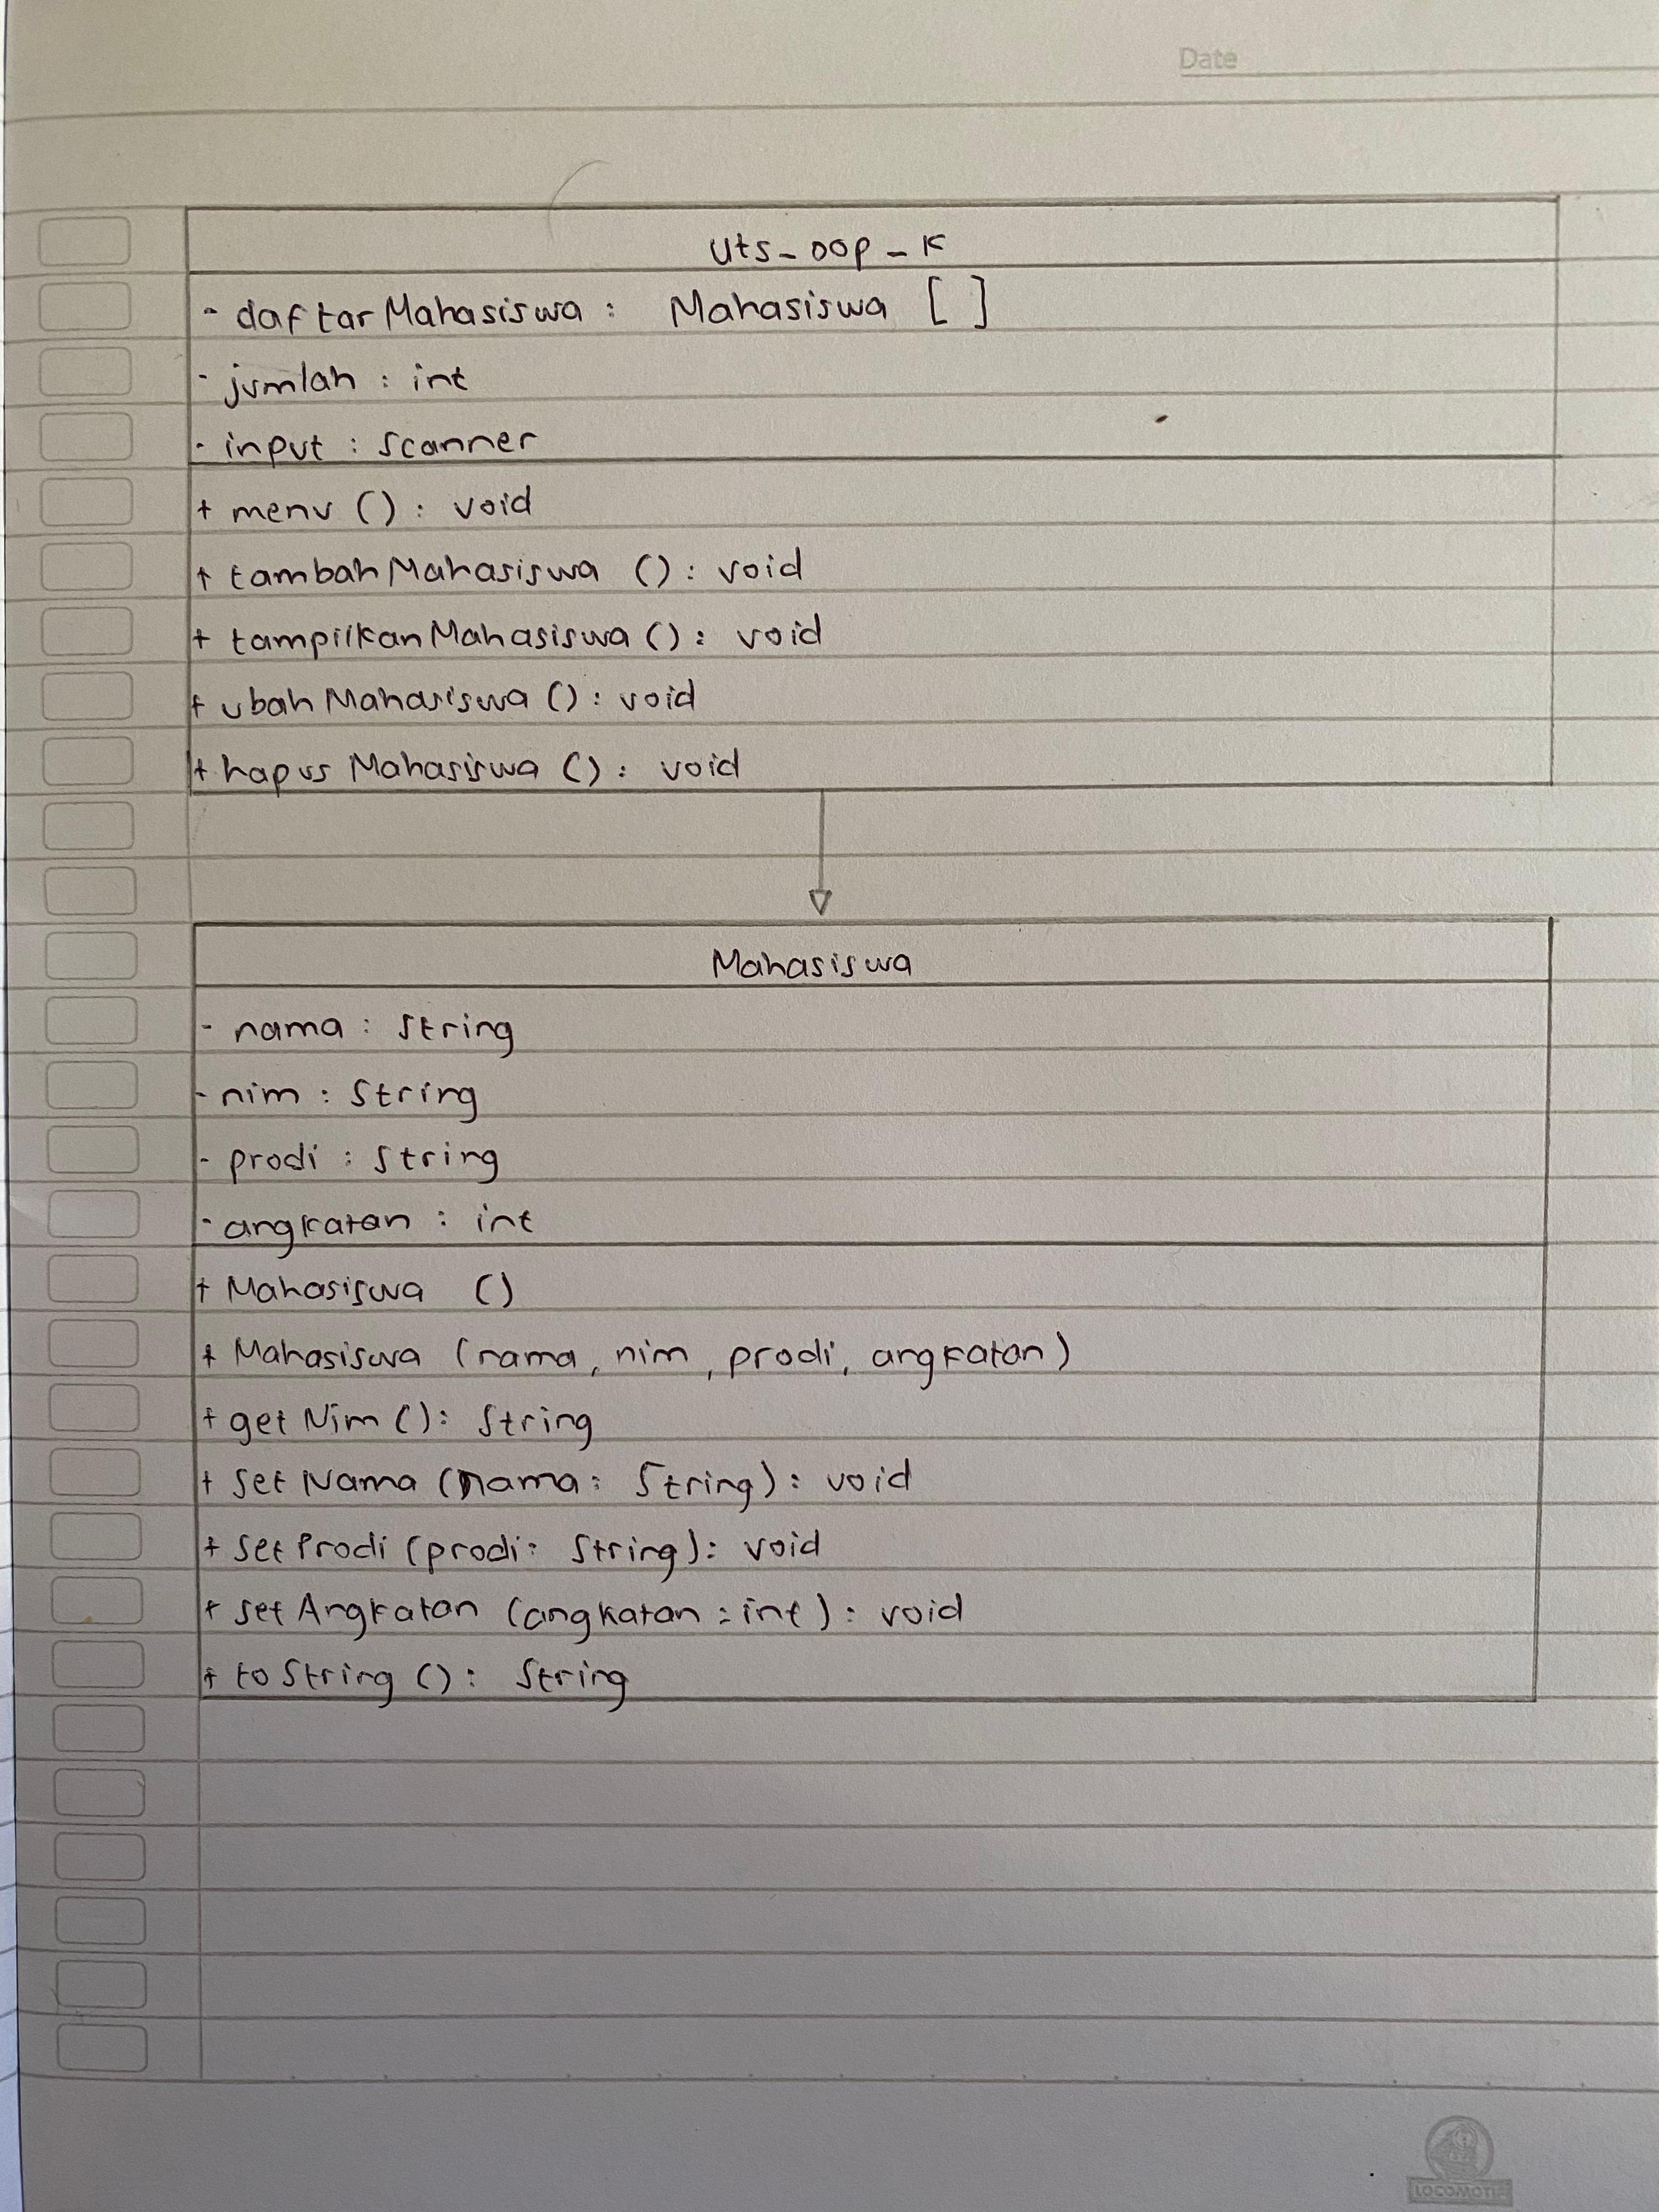 Date
Uts_oop_K
- daftarMahasiswa : Mahasiswa [ ]
- jumlah : int
- input : scanner
+ menu () : void
+ tambahMahasiswa () : void
+ tampilkanMahasiswa () : void
+ ubahMahasiswa () : void
+ hapusMahasiswa () : void
Mahasiswa
- nama : String
- nim : String
- prodi : String
- angkatan : int
+ Mahasiswa ()
+ Mahasiswa (nama, nim, prodi, angkatan)
+ getNim () : String
+ setNama (nama : String) : void
+ setProdi (prodi : String) : void
+ setAngkatan (angkatan : int) : void
+ toString () : String
LOCOMOTIF